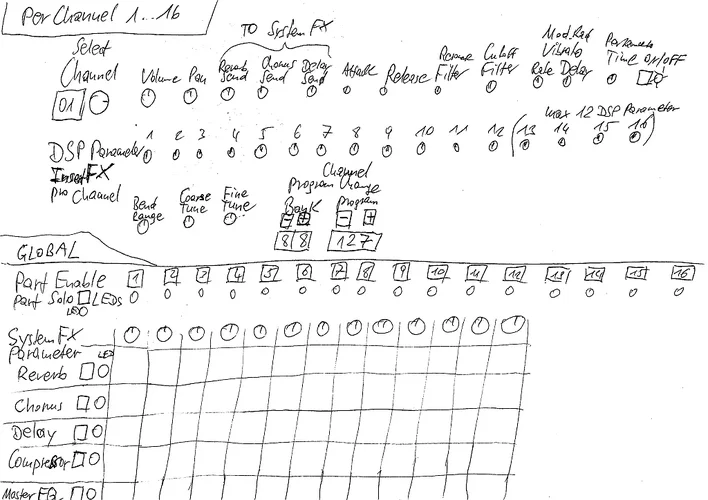 Per Channel 1...16
TO System FX
Select
Channel
01
Volume Pan Reverb Send Chorus Send Delay Send Attack Release Resonance Filter Cutoff Filter Mod.Rad Vibrato Rate Delay Portamento Time ON/OFF
max 12 DSP Parameter
1 2 3 4 5 6 7 8 9 10 11 12 (13 14 15 16)
DSP Parameter
Insert FX
pro Channel
Bend Range Coarse Tune Fine Tune
Channel
Program Change
Bank program
- + - +
8 8 127
GLOBAL
Part Enable 1 2 3 4 5 6 7 8 9 10 11 12 13 14 15 16
Part Solo LEDs
LED
System FX
Parameter LED
Reverb
Chorus
Delay
Compressor
Master EQ